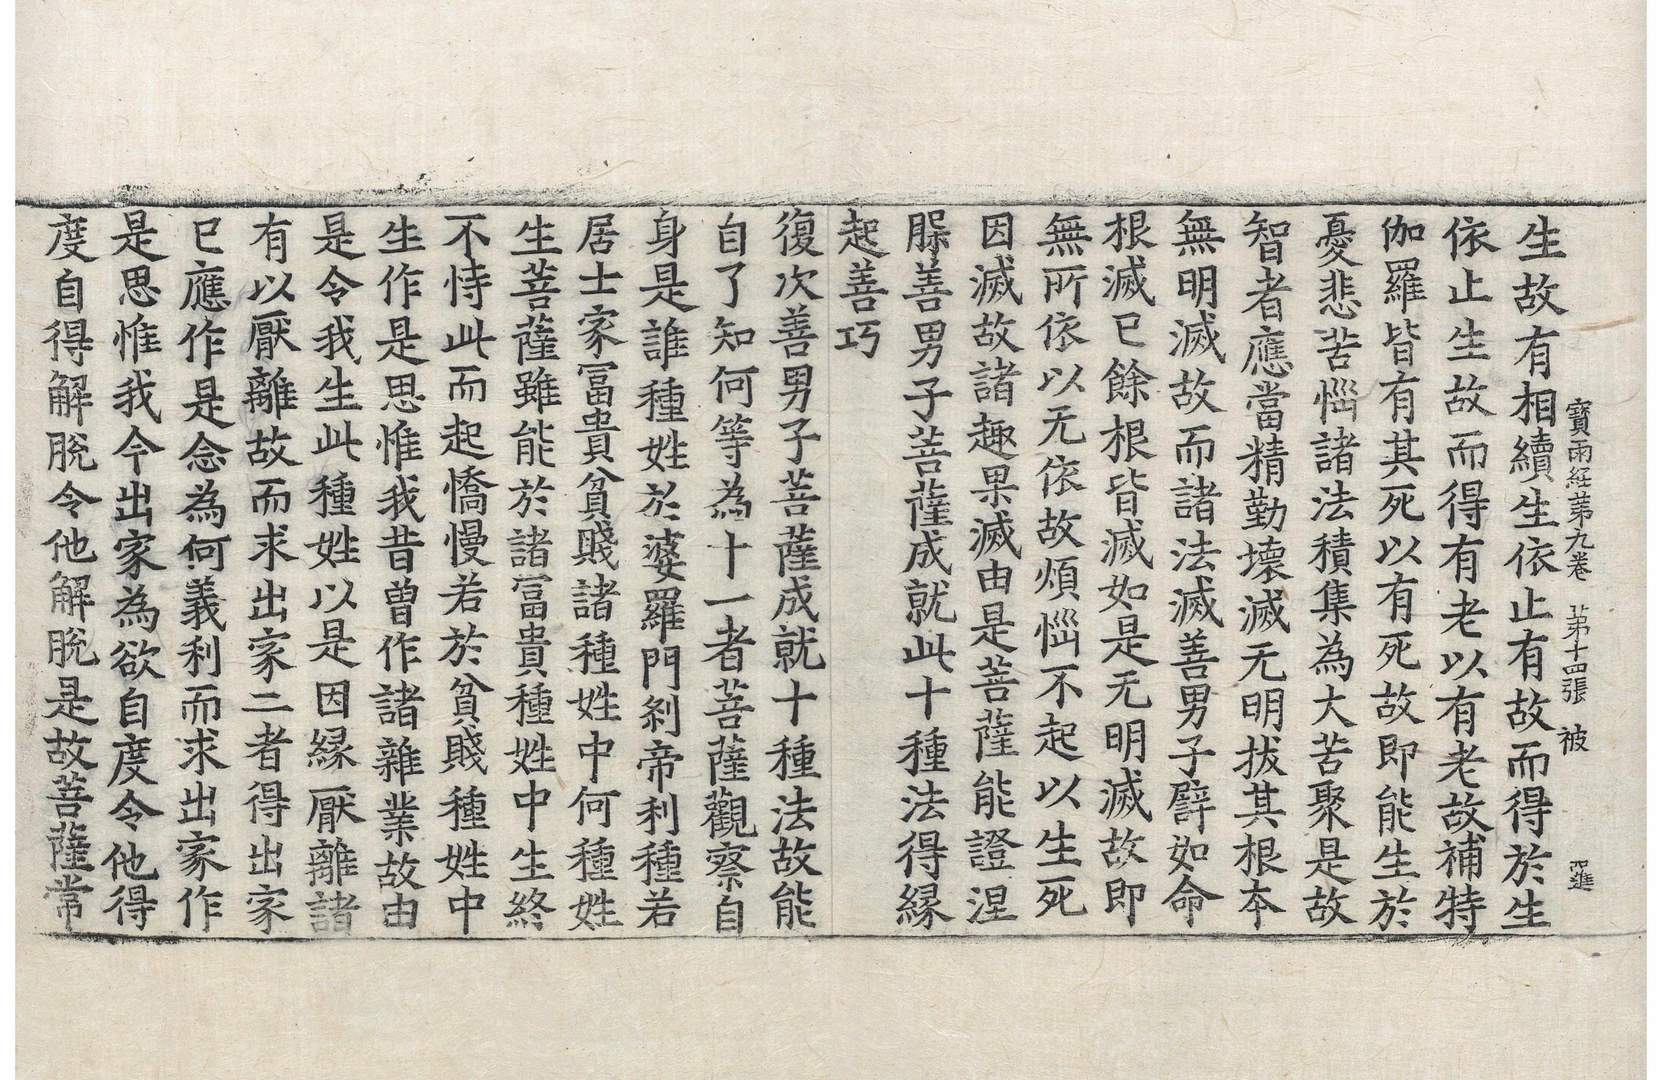 寶雨経苐九卷　苐十四張　被
生故有相續生依止有故而得於生
依止生故而得有老以有老故補特
伽羅皆有其死以有死故即能生於
憂悲苦惱諸法積集為大苦聚是故
智者應當精勤壞滅无明拔其根本
無明滅故而諸法滅善男子譬如命
根滅已餘根皆滅如是无明滅故即
無所依以无依故煩惱不起以生死
因滅故諸趣果滅由是菩薩能證涅
槃善男子菩薩成就此十種法得緣
起善巧
復次善男子菩薩成就十種法故能
自了知何等為十一者菩薩觀察自
身是誰種姓於婆羅門剎帝利種若
居士家冨貴貧賤諸種姓中何種姓
生菩薩雖能於諸冨貴種姓中生終
不恃此而起憍慢若於貧賤種姓中
生作是思惟我昔曾作諸雜業故由
是令我生此種姓以是因緣厭離諸
有以厭離故而求出家二者得出家
已應作是念為何義利而求出家作
是思惟我今出家為欲自度令他得
度自得解脫令他解脫是故菩薩常